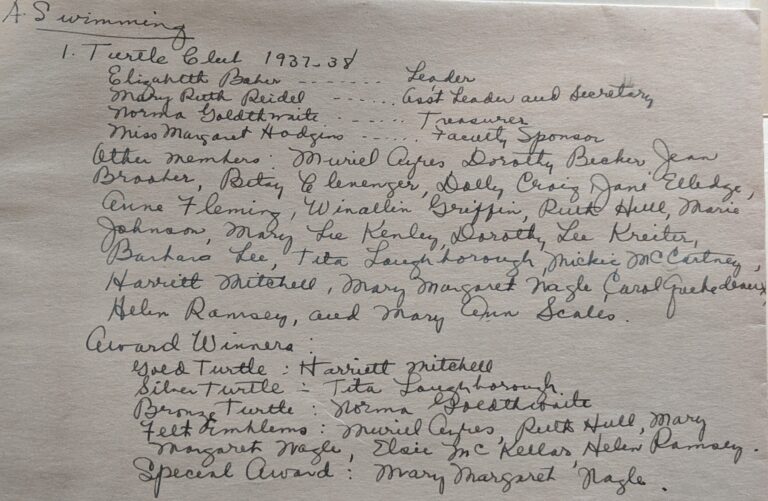 A. Swimming
1. Turtle Club 1937-38
Elizabeth Baker ------- Leader
Mary Ruth Reidel ------ Ass't Leader and Secretary
Norma Goldthwaite ------ Treasurer
Miss Margaret Hodgins ----- Faculty Sponsor
Other members: Muriel Ayres Dorothy Becker Jean
Brasher, Betsy Clevenger, Dolly Craig Jane Elledge,
Anne Fleming, Winallin Griffin, Ruth Hull, Marie
Johnson, Mary Lee Kenley, Dorothy Lee Kreiter,
Barbara Lee, Tita Loughborough, Mickie McCartney,
Harriett Mitchell, Mary Margaret Nagle, Carol
Helen Ramsey, and Mary Ann Scales.
Award Winners:
Gold Turtle: Harriett Mitchell
Silver Turtle: Tita Loughborough.
Bronze Turtle: Norma Goldthwaite
Felt Emblems: Muriel Ayres, Ruth Hull, Mary
Margaret Nagle, Elsie McKellar Helen Ramsey.
Special Award: Mary Margaret Nagle.